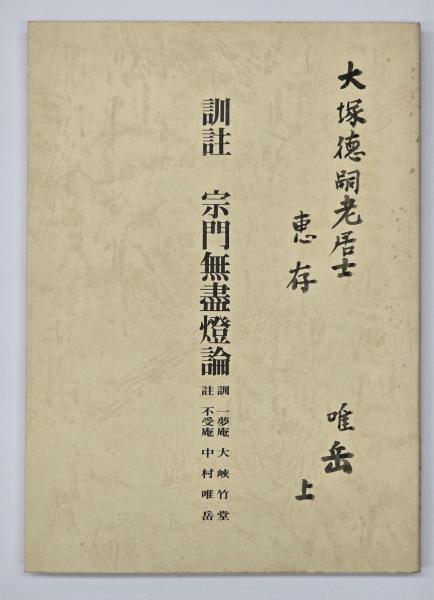 大塚徳嗣老居士
恵存
唯岳
上
訓註 宗門無盡燈論
訓 一夢庵 大峽竹堂
註 不受庵 中村唯岳